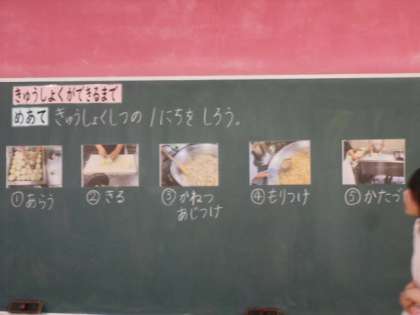 きゅうしょくができるまで
めあて きゅうしょくしつの1にちを しろう。
①あらう
②きる
③かねつ
あじつけ
④もりつけ
⑤かたづ